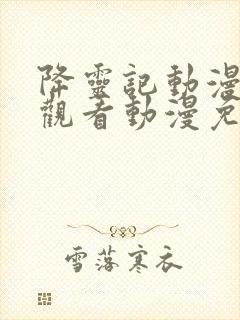 降靈記動漫
觀看動漫免
雪落寒衣